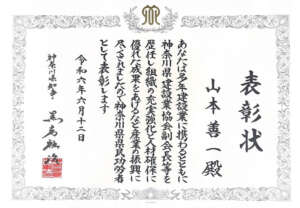 表彰状
山本善一殿
あなたは多年建設業に携わるとともに
神奈川県建設業協会副会長等を
歴任し組織の充実強化と人材確保に
優れた成果をあげるなど産業の振興に
尽されましたので神奈川県県民功労者
として表彰します
令和六年六月十二日
神奈川県知事
黒岩祐治